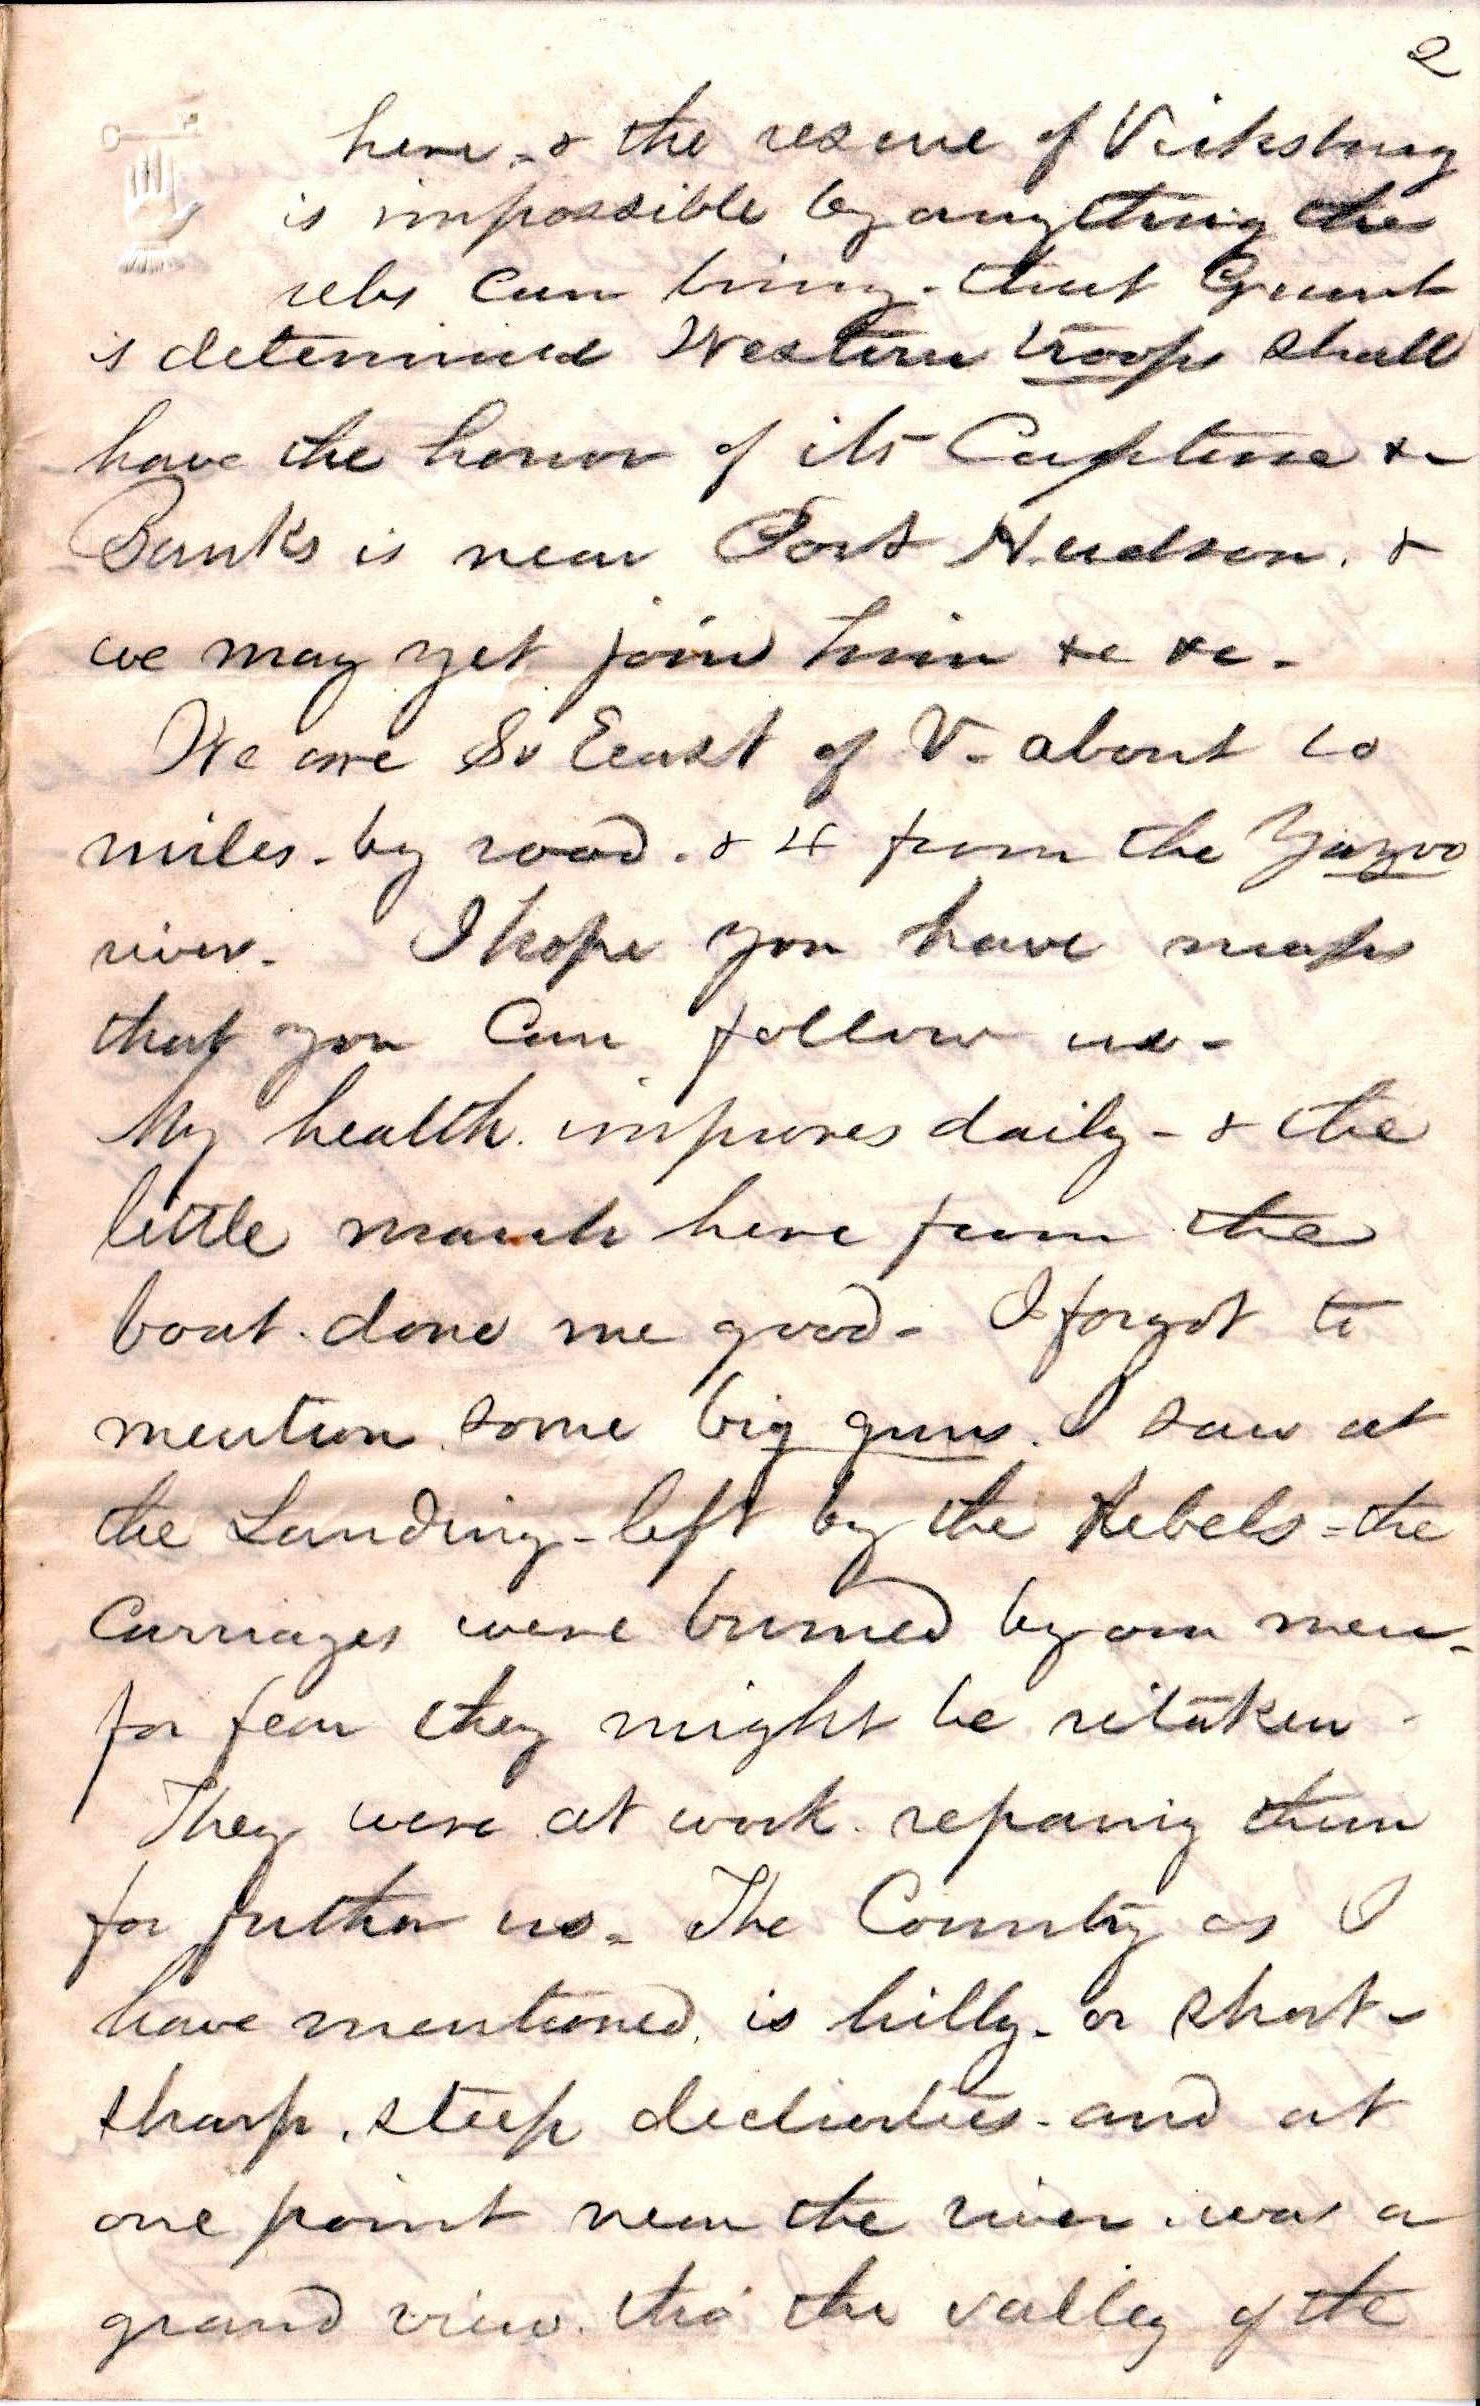 2
here - & the rescue of Vicksburg
is impossible by anything the
rebs can bring - that Grant
is determined Western troops shall
have the honor of its Capture &
Banks is near Port Hudson. &
we may yet join him &c &c -
We are So East of V - about 10
miles - by road - & 4 from the Yazoo
river - I hope you have maps
that you Can follow us -
My health improves daily - & the
little march here from the
boat done me good - I forgot to
mention some big guns. I saw at
the Landing - left by the Rebels - the
Carriages were burned by our men -
for fear they might be retaken -
They were at work repairig them
for futher us - The Country as I
have mentioned is hilly - or short -
sharp, steep declivities - and at
one point near the river was a
grand view thō the valley of the